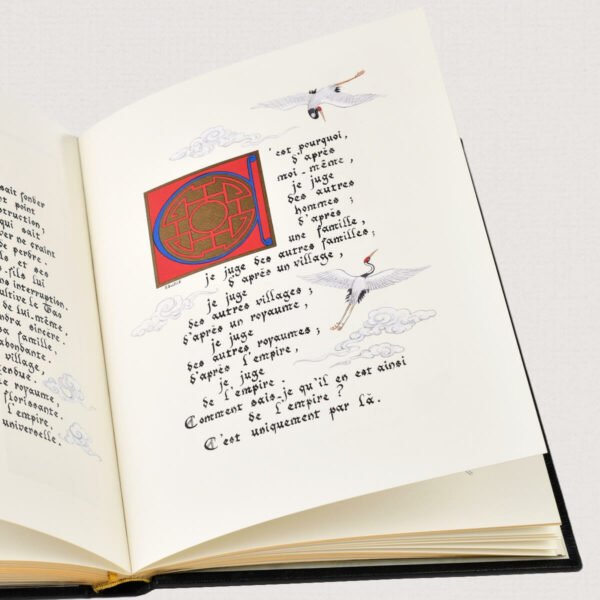 sait fonder
t point
struction ;
qui sait
ver ne craint
de perdre.
ls et ses
-fils lui
ns interruption.
cultive le Tao
de lui-même,
ndra sincère.
sa famille,
abondante.
village,
endue.
e royaume,
florissante.
l'empire,
universelle.
C'est pourquoi,
d'après
moi-même,
je juge
des autres
hommes ;
d'après
une famille,
je juge des autres familles ;
d'après un village,
je juge
des autres villages ;
d'après un royaume,
je juge
des autres royaumes ;
d'après l'empire,
je juge
de l'empire.
Comment sais-je qu'il en est ainsi
de l'empire ?
C'est uniquement par là.